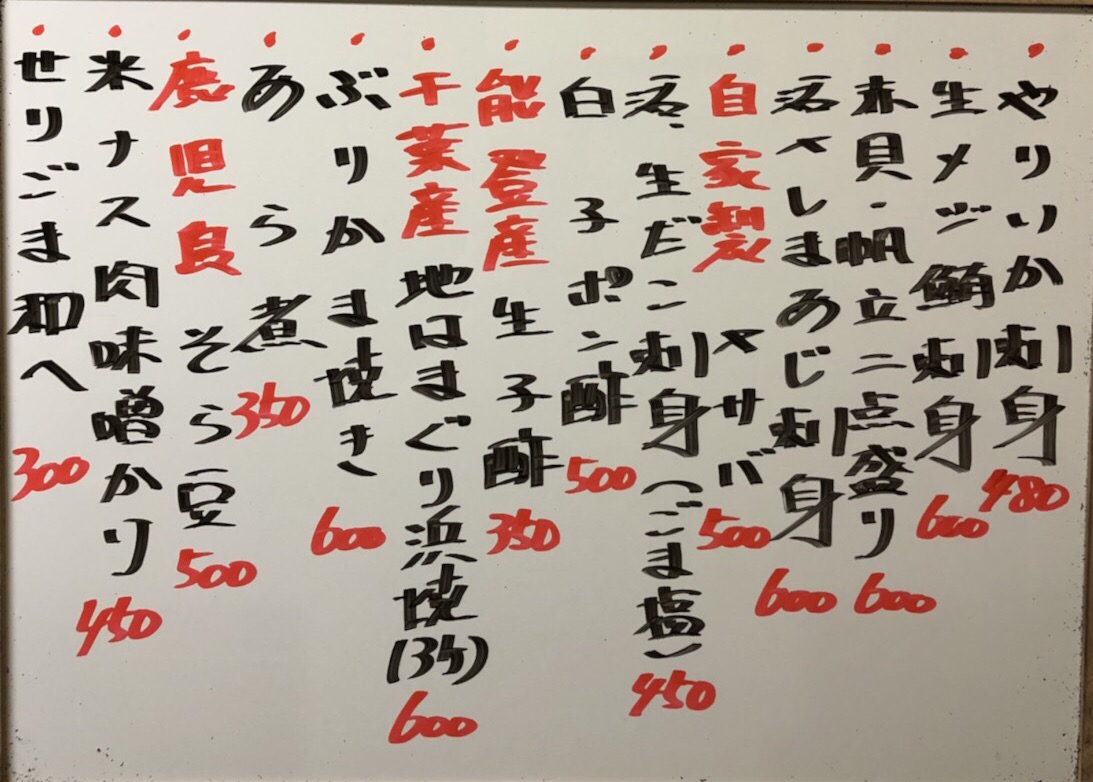 やりいか刺身 480
生メジ鮪刺身 600
赤貝・帆立二点盛り 600
活〆しまあじ刺身 600
自家製〆サバ 500
活、生だこ刺身(ごま塩) 450
白子ポン酢 500
能登産生子酢 350
千葉産地はまぐり浜焼(3ケ) 600
ぶりかま焼き 600
あら煮 350
鹿児島そら豆 500
米ナス肉味噌かけ 450
せりごま和へ 300